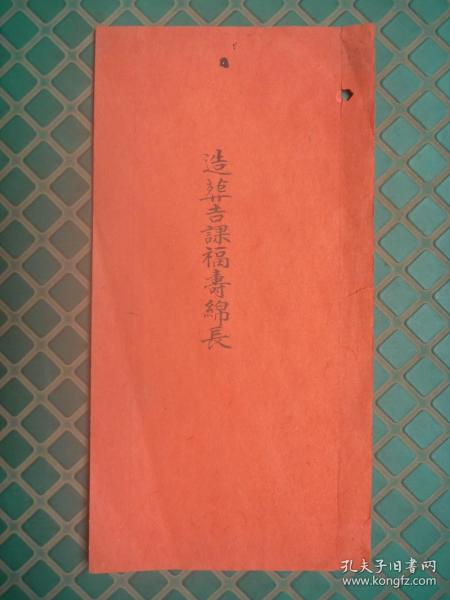 造葬吉課福壽綿長
孔夫子旧书网
www.kongfz.com